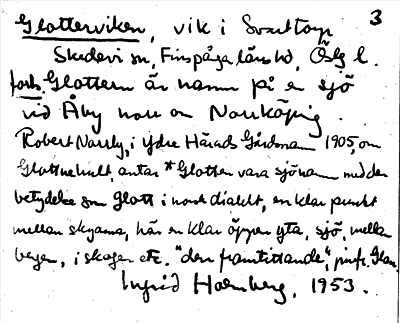 3
Glotterviken, vik i Svarttorp
Skedevi sn, Finspånga läns hd, Östg l.
forts. Glottern är namn på en sjö
vid Åby norr om Norrköping.
Robert Narrby, i Ydre Härads Gårdsnamn 1905, om
Glottnehult, antar *Glotten vara sjönamn med den
betydelse som glott i norsk dialekt, en klar punkt
mellan skyarna, här en klar öppen yta, sjö, mellan
bergen, i skogen etc. "den framtittande", jmfr. Glan.
Ingrid Holmberg, 1953.